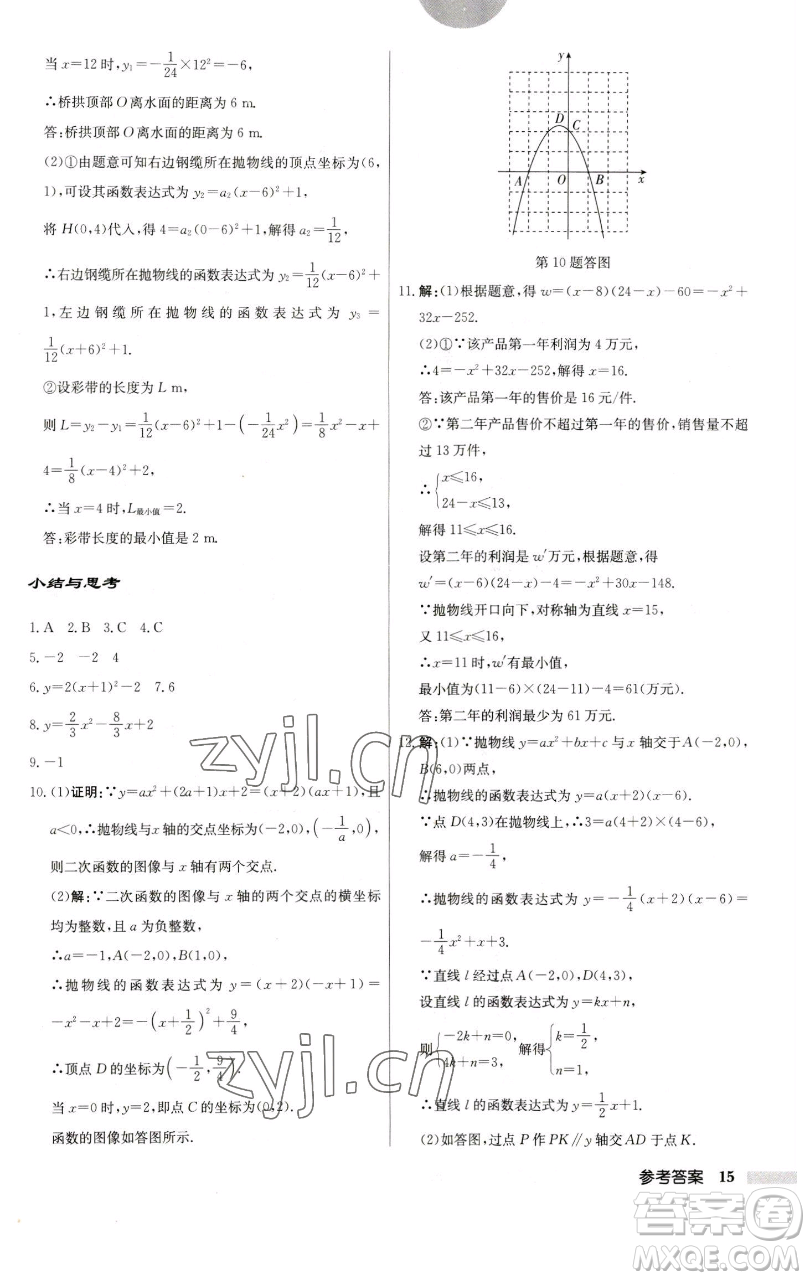 当x=12时,y₁=-1/24×12²=-6,
∴桥拱顶部O离水面的距离为6 m.
答:桥拱顶部O离水面的距离为6 m.
(2)①由题意可知右边钢缆所在抛物线的顶点坐标为(6,
1),可设其函数表达式为y₂=a₂(x-6)²+1,
将H(0,4)代入,得4=a₂(0-6)²+1,解得a₂=1/12,
∴右边钢缆所在抛物线的函数表达式为y₂=1/12(x-6)²+
1,左边钢缆所在抛物线的函数表达式为y₃=
1/12(x+6)²+1.
②设彩带的长度为L m,
则L=y₂-y₁=1/12(x-6)²+1-(-1/24x²)=1/8x²-x+
4=1/8(x-4)²+2,
∴当x=4时,L最小值=2.
答:彩带长度的最小值是2 m.
小结与思考
1.A 2.B 3.C 4.C
5.-2 -2 4
6.y=2(x+1)²-2 7.6
8.y=2/3x²-8/3x+2
9.-1
10.(1)证明:∵y=ax²+(2a+1)x+2=(x+2)(ax+1),且
a<0,∴抛物线与x轴的交点坐标为(-2,0),(-1/a,0),
则二次函数的图像与x轴有两个交点.
(2)解:∵二次函数的图像与x轴的两个交点的横坐标
均为整数,且a为负整数,
∴a=-1,A(-2,0),B(1,0),
∴抛物线的函数表达式为y=(x+2)(-x+1)=
-x²-x+2=-(x+1/2)²+9/4,
∴顶点D的坐标为(-1/2,9/4).
当x=0时,y=2,即点C的坐标为(0,2).
函数的图像如答图所示.
y
D
C
A
O
B
x
第10题答图
11.解:(1)根据题意,得w=(x-8)(24-x)-60=-x²+
32x-252.
(2)①∵该产品第一年利润为4万元,
∴4=-x²+32x-252,解得x=16.
答:该产品第一年的售价是16元/件.
②∵第二年产品售价不超过第一年的售价,销售量不超
过13万件,
∴{x≤16,
24-x≤13,
解得11≤x≤16.
设第二年的利润是w′万元,根据题意,得
w′=(x-6)(24-x)-4=-x²+30x-148.
∵抛物线开口向下,对称轴为直线x=15,
又11≤x≤16,
∴x=11时,w′有最小值,
最小值为(11-6)×(24-11)-4=61(万元).
答:第二年的利润最少为61万元.
12.解:(1)∵抛物线y=ax²+bx+c与x轴交于A(-2,0),
B(6,0)两点,
∴抛物线的函数表达式为y=a(x+2)(x-6).
∵点D(4,3)在抛物线上,∴3=a(4+2)×(4-6),
解得a=-1/4,
∴抛物线的函数表达式为y=-1/4(x+2)(x-6)=
-1/4x²+x+3.
∵直线l经过点A(-2,0),D(4,3),
设直线l的函数表达式为y=kx+n,
则{-2k+n=0, 解得{k=1/2,
4k+n=3, n=1,
∴直线l的函数表达式为y=1/2x+1.
(2)如答图,过点P作PK∥y轴交AD于点K.
参考答案 15
zyjl.cn
zyjl.cn
答案圈
MXQE.COM